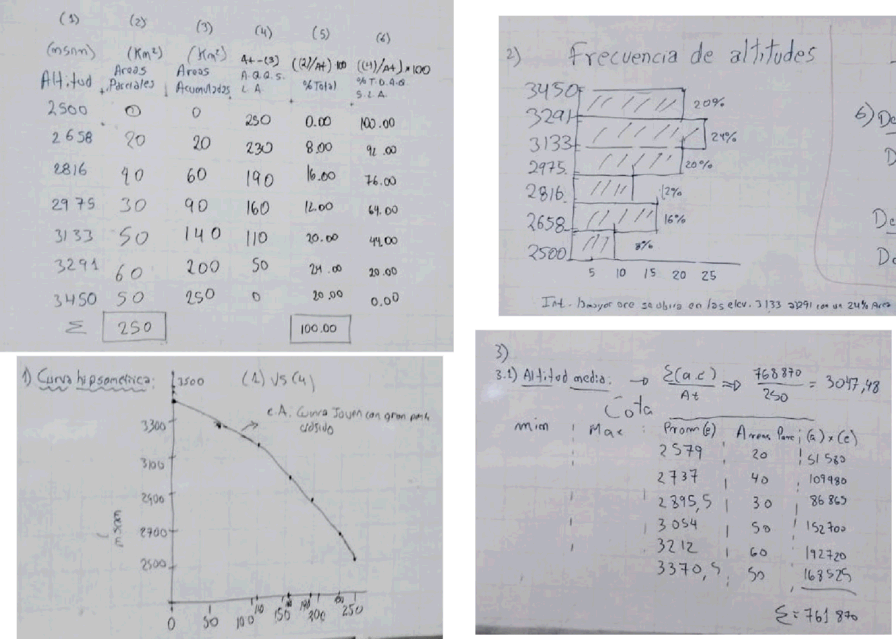 (1) (2) (3) (4) (5) (6)
(msnm) (Km²) (Km²) At-(3) ((2)/At)*100 ((4)/At)*100
Altitud Areas Parciales Areas Acumuladas A.Q.Q.S. L.A. % Total % T.Q.Q.Q S.L.A.
2500 0 0 250 0.00 100.00
2658 20 20 230 8.00 92.00
2816 40 60 190 16.00 76.00
2975 30 90 160 12.00 64.00
3133 50 140 110 20.00 44.00
3291 60 200 50 24.00 20.00
3450 50 250 0 20.00 0.00
Σ 250 100.00
2) Frecuencia de altitudes
3450
20%
3291
24%
3133
20%
2975
12%
2816
16%
2658
8%
2500
5 10 15 20 25
Int. mayor se en las elev. 3133 con un 24% Area
6) De
D
De
De
1) Curva hipsometrica: (1) VS (4)
3500
e.A. Curva Joven con gran
3300
3100
2900
2700
2500
msnm
0 50 100 110 150 160 190 200 250
3)
3.1) Altitud media: → Σ(a.c)/At ⇒ 768870/250 = 3047,48
Cota
min Max Prom (c) Areas Parc (a)x(c)
2579 20 51580
2737 40 109480
2895,5 30 86865
3054 50 152700
3212 60 192720
3370,5 50 168525
Σ = 761870